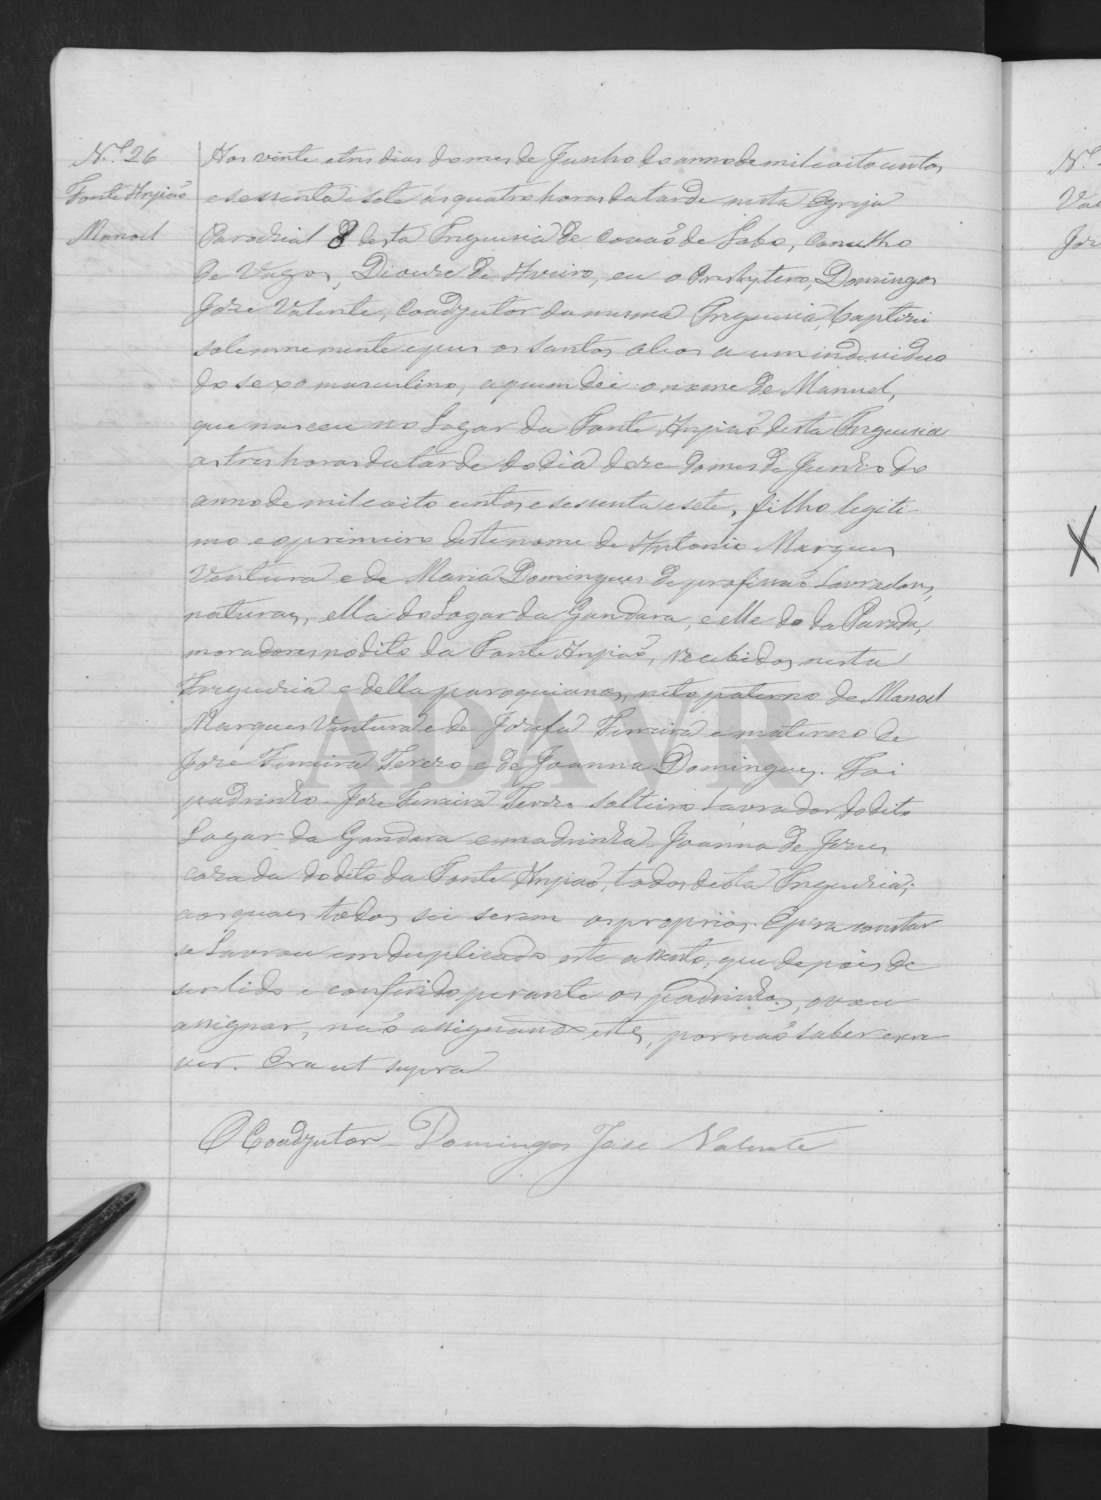 N.º 26
Fonte Anjiaõ
Manoel
Aos vinte e tres dias do mes de Junho do anno de mil oito centos
e sessenta e sete ás quatro horas da tarde nesta Egreja
Parochial desta Freguesia de Covaõ do Lobo, Concelho
de Vagos, Diocese de Aveiro, eu o Presbytero, Domingos
José Valente, Coadjutor da mesma Freguesia, baptizei
solemnemente e pus os santos oleos a um individuo
do sexo masculino, a quem dei o nome de Manuel,
que nasceu no Logar da Fonte Anjiaõ desta Freguesia
as tres horas da tarde do dia doze do mes de Junho do
anno de mil e oito centos e sessenta e sete, filho legiti-
mo e o primeiro deste nome de Antonio Marques
Ventura e de Maria Domingues de profissaõ Lavradores,
naturaes, ella do Logar da Gandara, e elle do da Parada,
moradores no dito da Fonte Anjiaõ, recebidos nesta
Freguesia e della paroquianos, neto paterno de Manoel
Marques Ventura e de Josefa Ferreira e materno de
José Ferreira Terezo e de Joanna Domingues. Foi
padrinho José Ferreira Terezo solteiro Lavrador do dito
Logar da Gandara e madrinha Joanna de Jesus
casada do dito da Fonte Anjiaõ, todos desta Freguesia;
aos quaes todos sei serem os proprios. E para constar
se Lavrou em duplicado este assento, que depois de
ser lido e conferido perante os padrinhos, vou eu
assignar, naõ assignando estes, por naõ saber escre
ver. Era ut supra
O Coadjutor Domingos José Valente
ADAVR
N.º
Jose